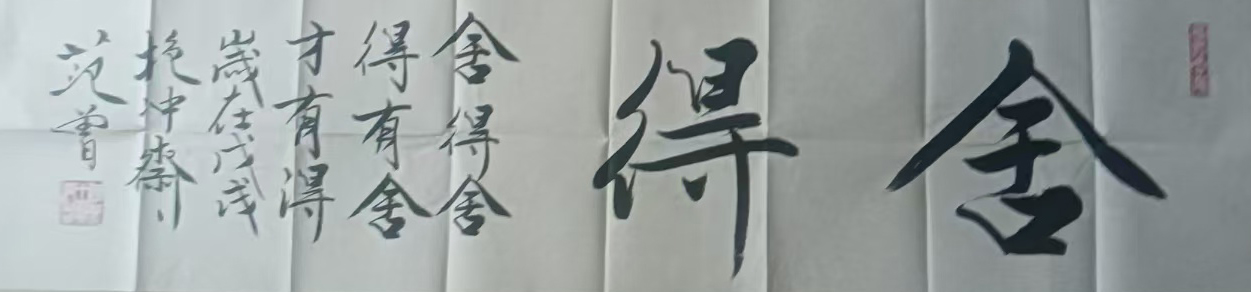 舍得
舍得舍
得有舍
才有得
岁在戊戌
抱冲斋
范曾